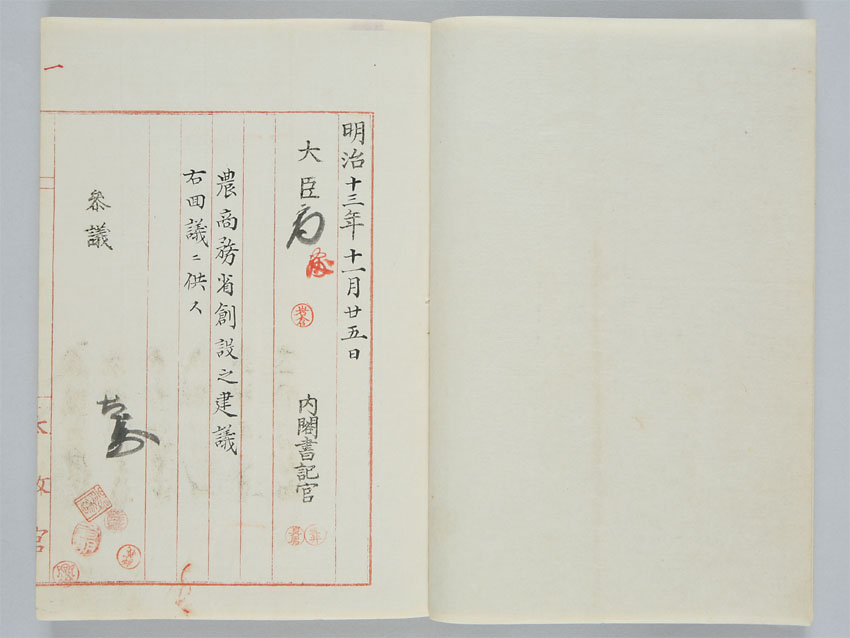 明治十三年十一月廿五日
大臣
内閣書記官
農商務省創設之建議
右回議ニ供ス
参議
一